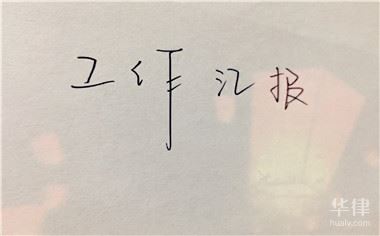 工作汇报
华律
hualv.com